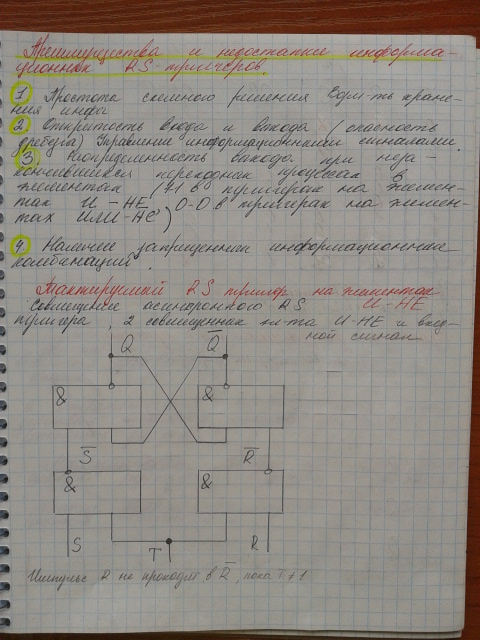 Преимущества и недостатки информа-
ционных RS-триггеров.
1 Простота схемного решения Один-ть хране-
ния инфа
2 Открытость входа и выхода (опасность
дребезга) Управление информационными сигналами.
3. Неопределенность выхода при неза-
кончившихся переходных процессах в
элементах (1-1 в триггерах на элемен-
тах И-НЕ, 0-0 в триггерах на элемен-
тах ИЛИ-НЕ)
4. Наличие запрещенных информационных
комбинаций.
Тактируемый RS триггер на элементах
И-НЕ
Совмещение асинхронного RS
триггера, 2 совмещенных эл-та И-НЕ и вход-
ной сигнал
Q Q̅
& &
S̅ R̅
& &
S T R
Импульс R не проходит в R̅, пока T≠1